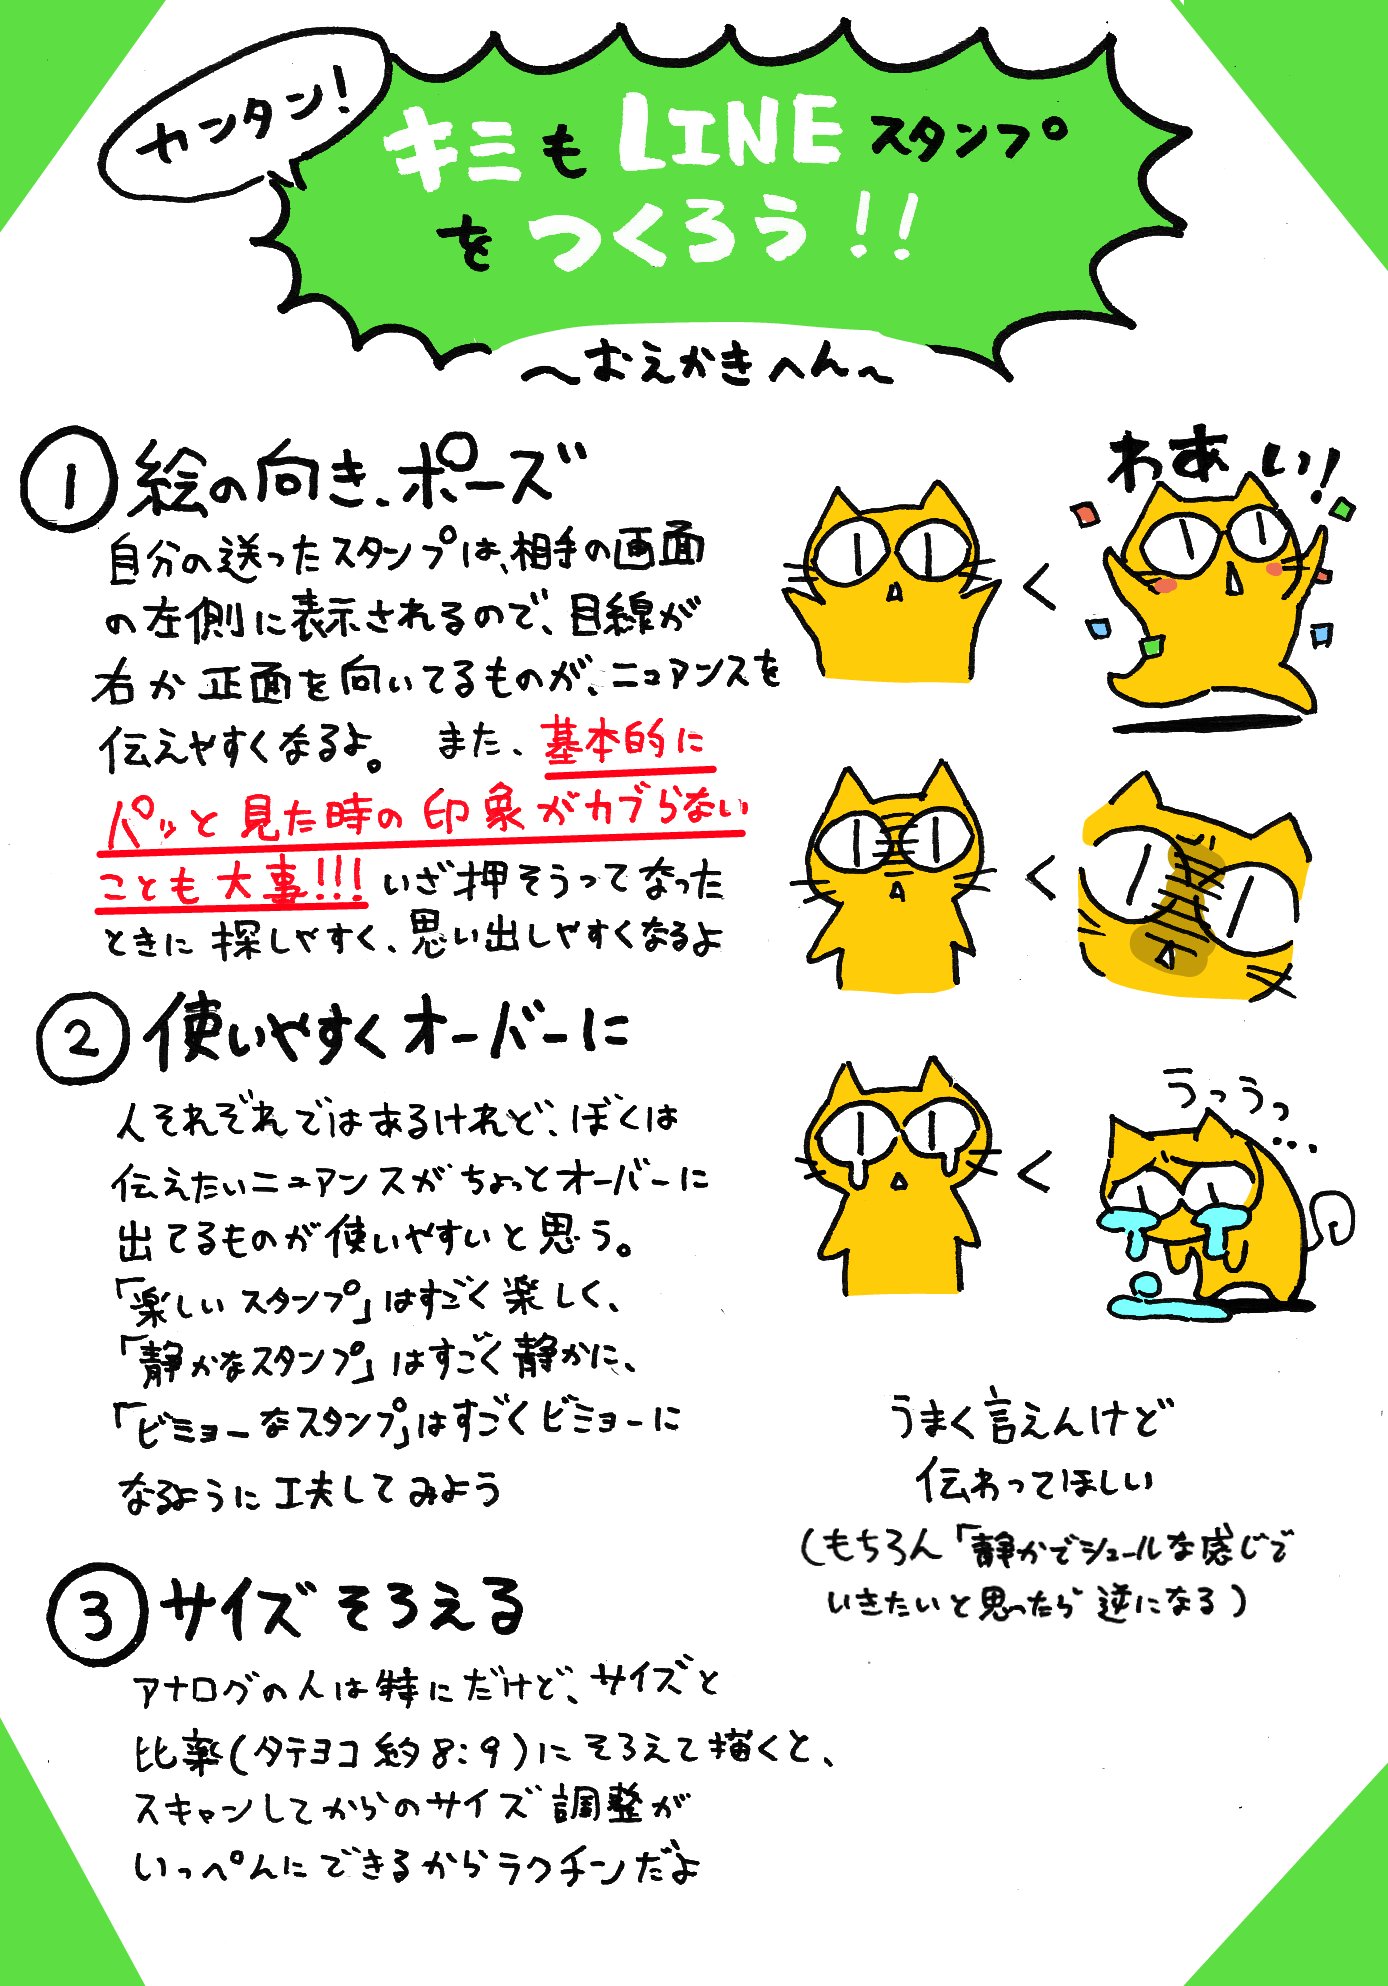 カンタン!
キミも LINE スタンプ
をつくろう!!
〜おえかきへん〜
① 絵の向き、ポーズ
自分の送ったスタンプは、相手の画面
の左側に表示されるので、目線が
右か正面を向いてるものが、ニュアンスを
伝えやすくなるよ。 また、基本的に
パッと見た時の印象がカブらない
ことも大事!!! いざ押そうってなった
ときに探しやすく、思い出しやすくなるよ
わあい!
<
<
② 使いやすくオーバーに
人それぞれではあるけれど、ぼくは
伝えたいニュアンスがちょっとオーバーに
出てるものが使いやすいと思う。
「楽しいスタンプ」はすごく楽しく、
「静かなスタンプ」はすごく静かに、
「ビミョーなスタンプ」はすごくビミョーに
なるように工夫してみよう
うっうっ…
<
うまく言えんけど
伝わってほしい
(もちろん「静かでシュールな感じで
いきたいと思ったら逆になる)
③ サイズそろえる
アナログの人は特にだけど、サイズと
比率(タテヨコ約8:9)にそろえて描くと、
スキャンしてからのサイズ調整が
いっぺんにできるからラクチンだよ